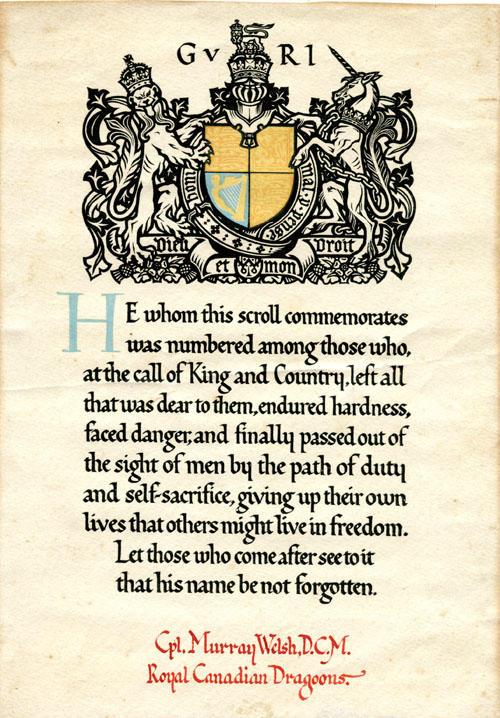 G V R I
honi
mal y pense
Dieu et mon Droit
HE whom this scroll commemorates
was numbered among those who,
at the call of King and Country, left all
that was dear to them, endured hardness,
faced danger, and finally passed out of
the sight of men by the path of duty
and self-sacrifice, giving up their own
lives that others might live in freedom.
Let those who come after see to it
that his name be not forgotten.
Cpl. Murray Welsh, D.C.M.
Royal Canadian Dragoons.